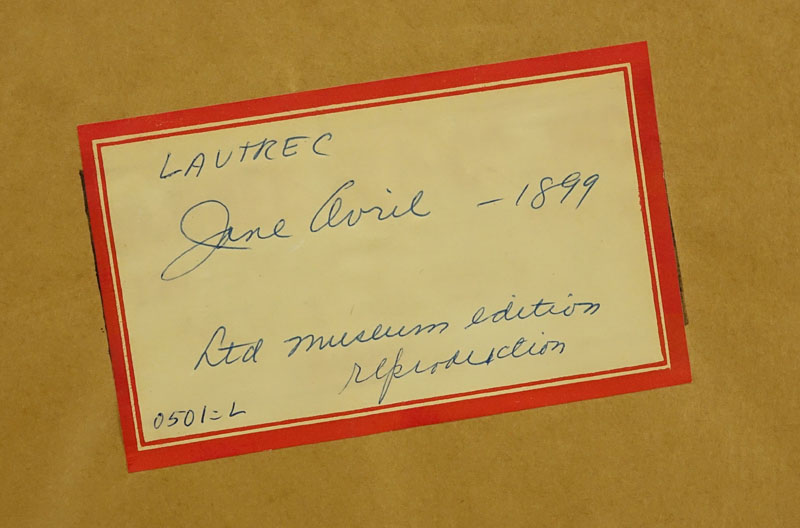 LAUTREC
Jane Avril - 1899
Ltd museum edition
reproduction
0501=L